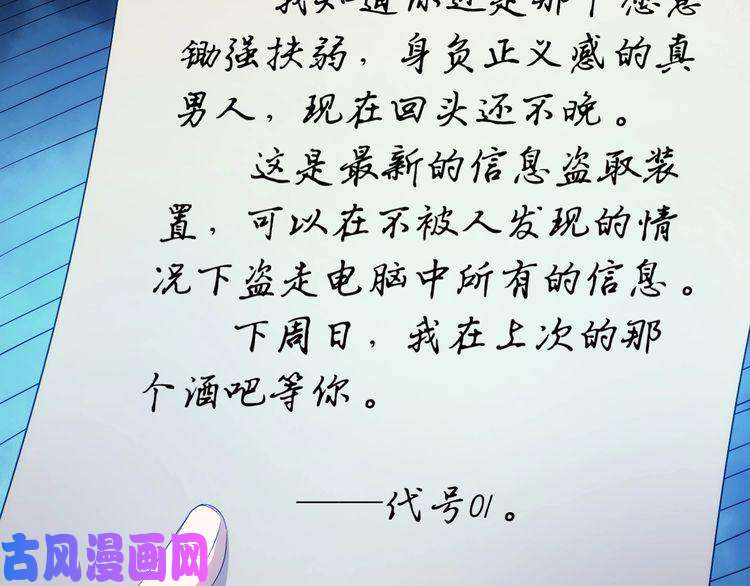 我知道你还是那个愿意
锄强扶弱，身负正义感的真
男人，现在回头还不晚。
这是最新的信息盗取装
置，可以在不被人发现的情
况下盗走电脑中所有的信息。
下周日，我在上次的那
个酒吧等你。
——代号01。
古风漫画网